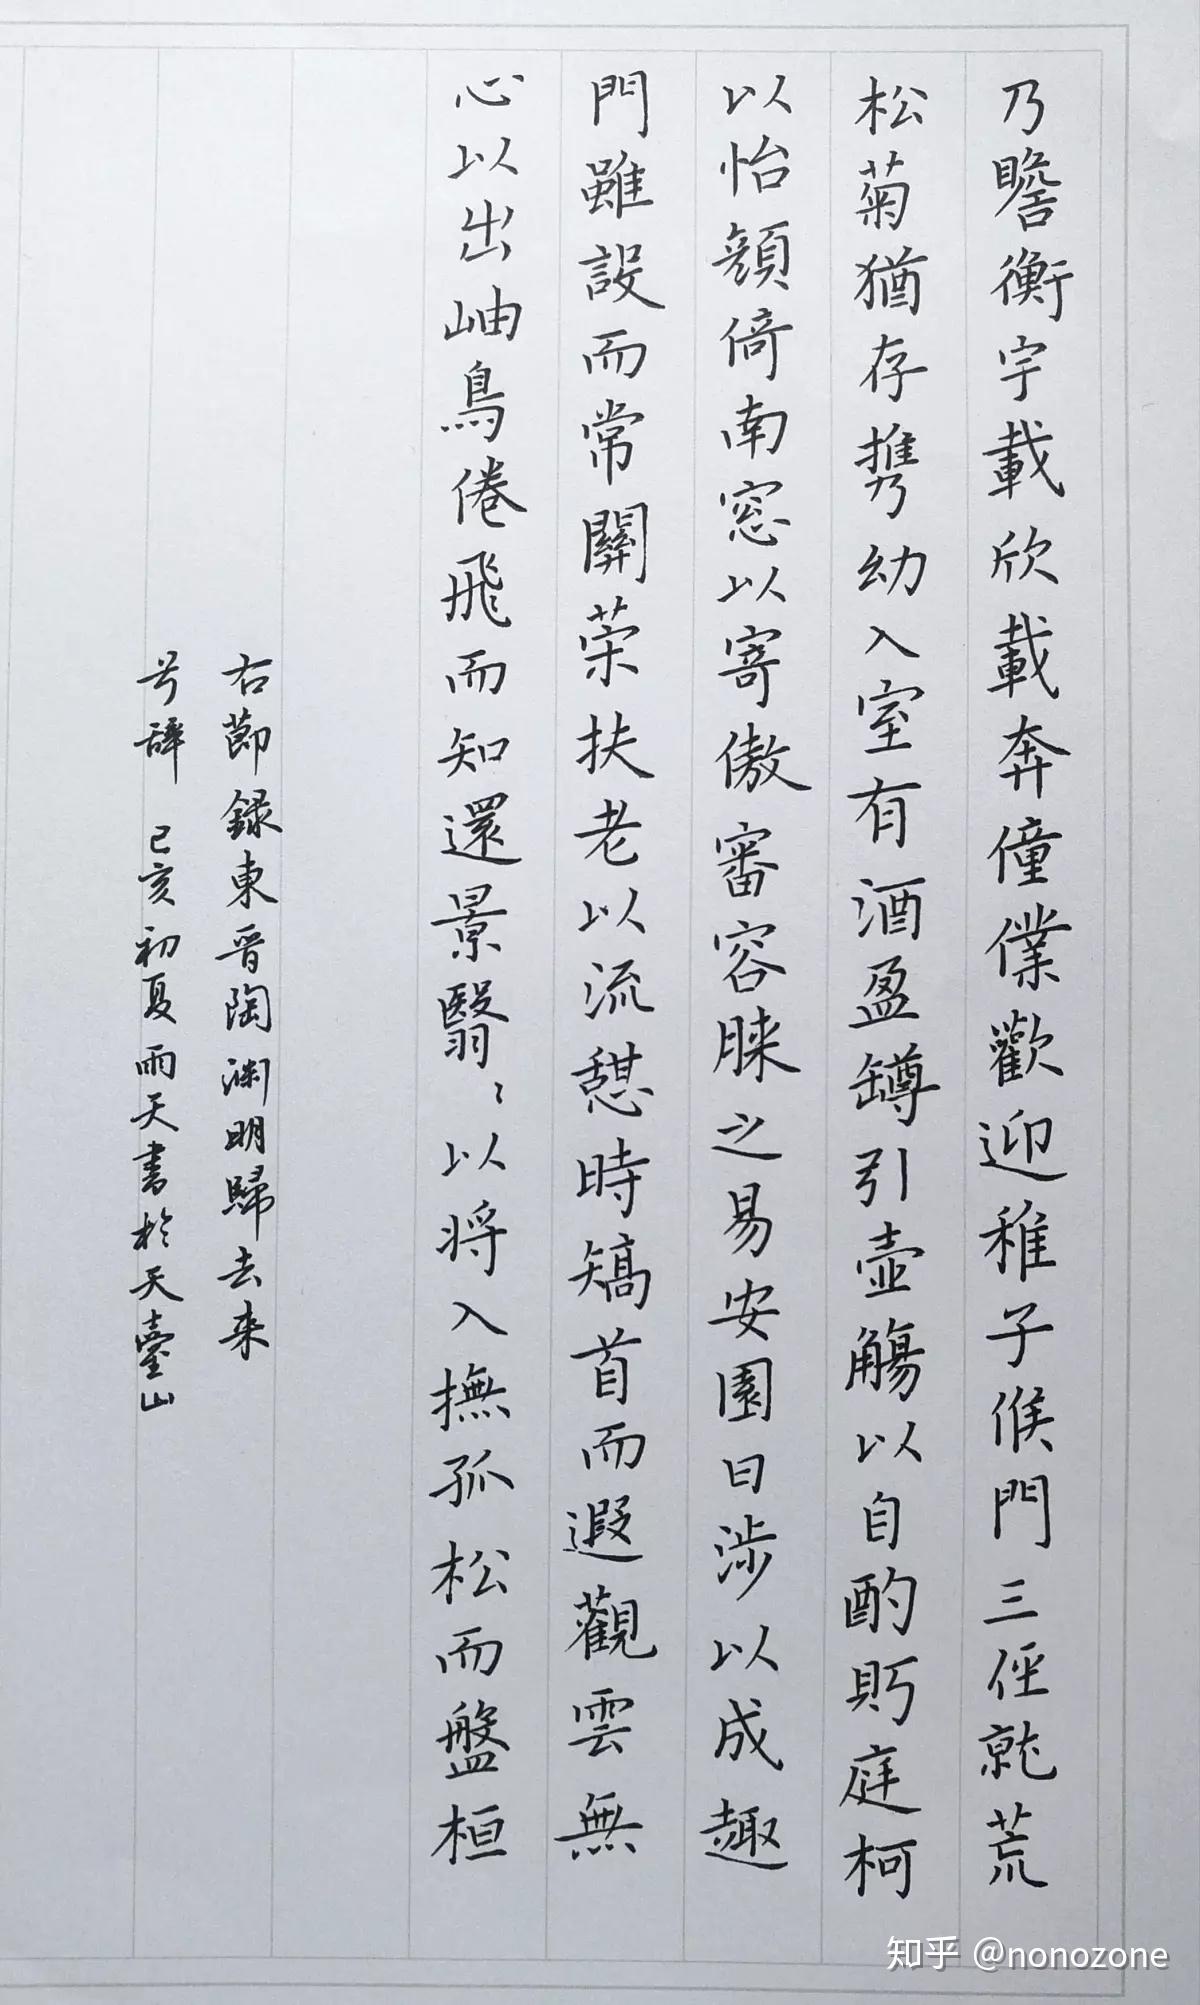 乃瞻衡宇載欣載奔僮僕歡迎稚子候門三径就荒
松菊猶存携幼入室有酒盈罇引壺觴以自酌眄庭柯
以怡顔倚南窓以寄傲審容膝之易安園日涉以成趣
門雖設而常關荣扶老以流憩時矯首而遐觀雲無
心以出岫鳥倦飛而知還景翳〻以将入撫孤松而盤桓
右節録東晋陶渊明歸去来
兮辞 己亥初夏雨天書於天臺山
知乎 @nonozone